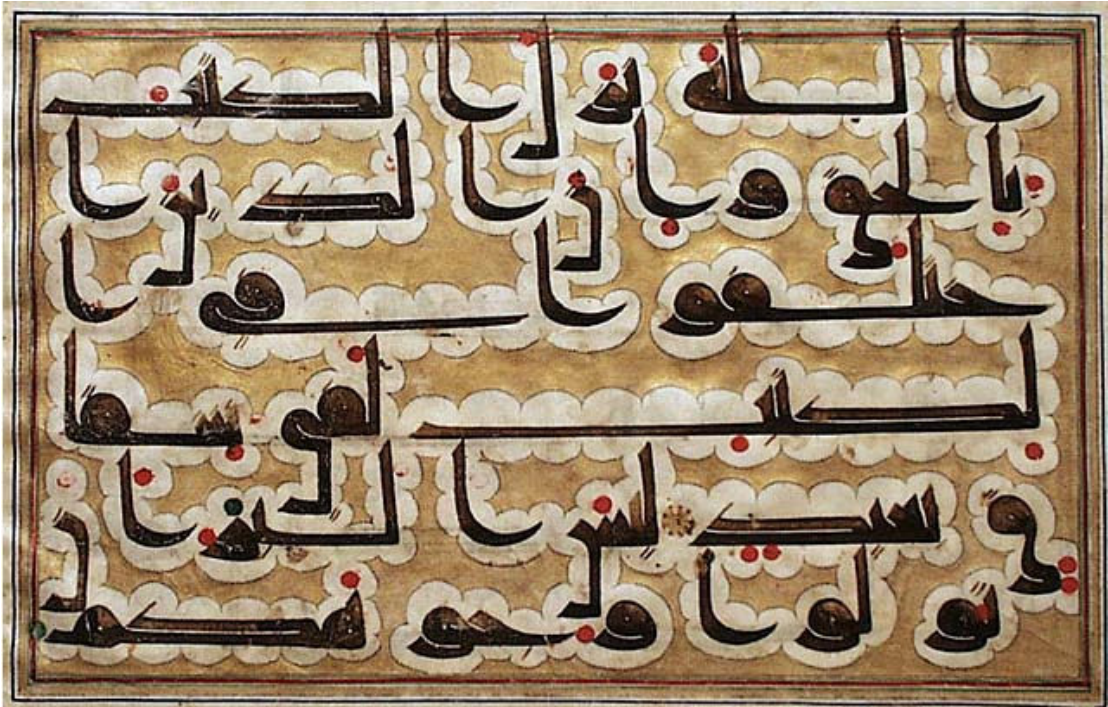 الله نزل الكتب
بالحق وان الذين ا
ختلفوا في ا
لكتب لفي شقا
ق بعيد ليس البر ان
تولوا وجوهكم